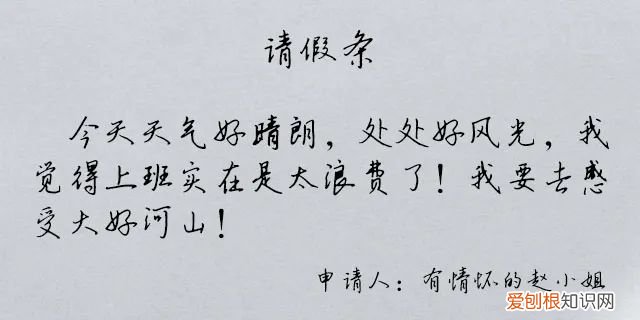 请假条
今天天气好晴朗，处处好风光，我
觉得上班实在是太浪费了！我要去感
受大好河山！
申请人：有情怀的赵小姐
爱刨根知识网